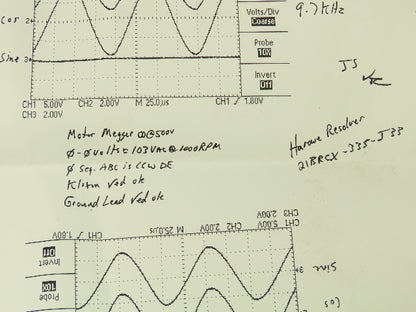 Cos 2
Sine 3
Volts/Div
Coarse
Probe
10X
Invert
Off
CH1 5.00V CH2 2.00V M 25.0µs CH1 / 1.80V
CH3 2.00V
9.7 KHz
JS
Motor Megger ∞@500V
Ø-Ø Volts = 103VAC @ 1000RPM
Ø Seq. ABC is CCW DE
Klixon Red ok
Ground Lead Red ok
Harowe Resolver
21BRCX-335-J33
CH3 2.00V
CH1 5.00V CH2 2.00V M 25.0µs CH1 / 1.80V
Invert
Off
Probe
10X
3
Sine
Cos